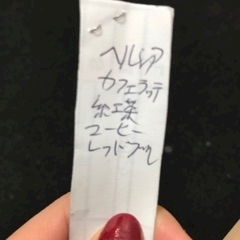 ヘルシア
カフェラッテ
紅茶
コーヒー
レッドブル